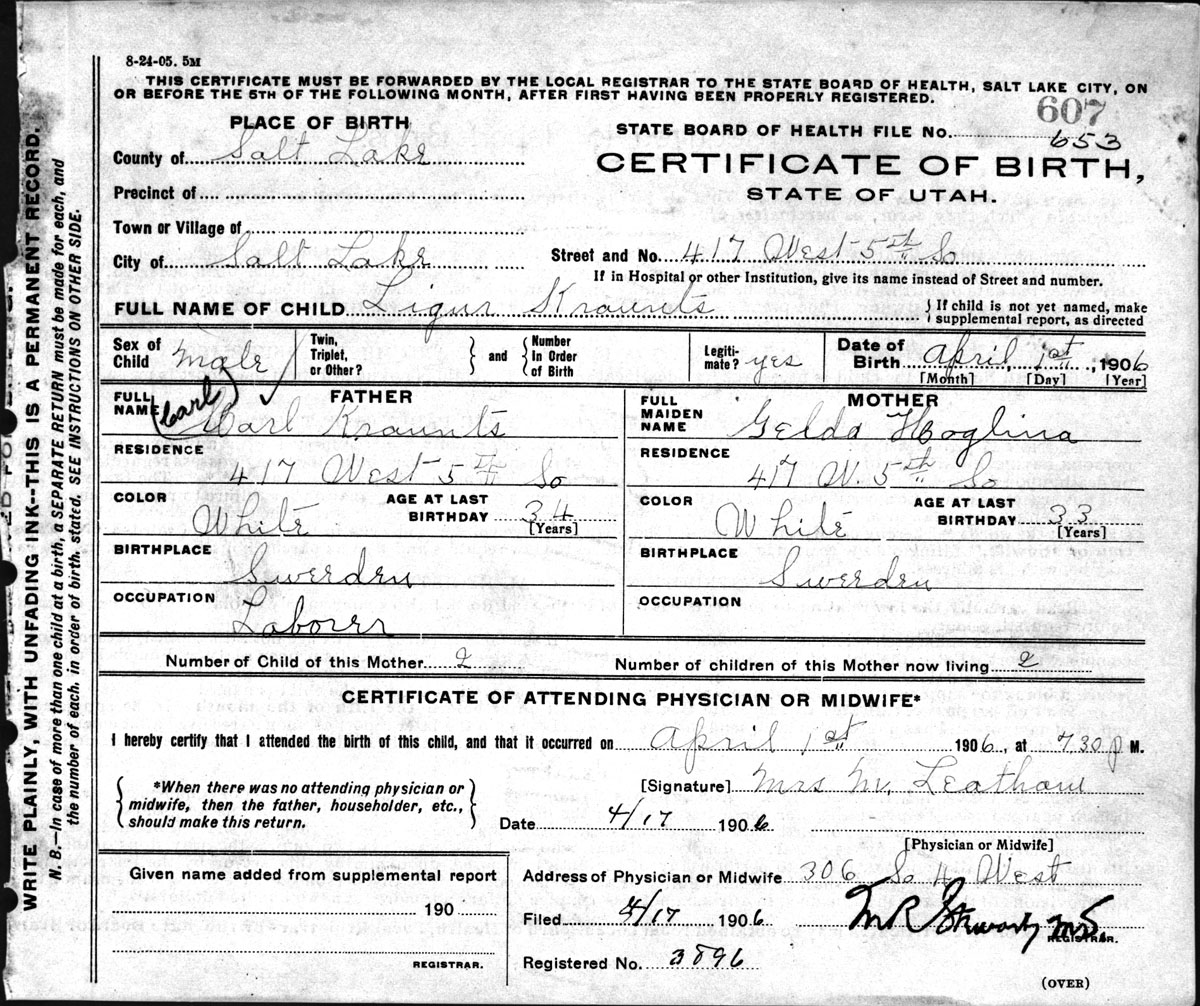 8-24-05. 5M
THIS CERTIFICATE MUST BE FORWARDED BY THE LOCAL REGISTRAR TO THE STATE BOARD OF HEALTH, SALT LAKE CITY, ON
OR BEFORE THE 5TH OF THE FOLLOWING MONTH, AFTER FIRST HAVING BEEN PROPERLY REGISTERED.
607
PLACE OF BIRTH
STATE BOARD OF HEALTH FILE No. 653
County of Salt Lake
CERTIFICATE OF BIRTH,
STATE OF UTAH.
Precinct of
Town or Village of
City of Salt Lake
Street and No. 417 West 5th So
If in Hospital or other Institution, give its name instead of Street and number.
FULL NAME OF CHILD Ligur Kraunts
{If child is not yet named, make
supplemental report, as directed
Sex of Child male
Twin, Triplet, or Other? } and { Number In Order of Birth
Legiti-mate? yes
Date of Birth April 1st, 1906
[Month] [Day] [Year]
FATHER
FULL NAME (Carl) Carl Kraunts
RESIDENCE
417 West 5th So
COLOR White
AGE AT LAST BIRTHDAY 34 [Years]
BIRTHPLACE
Swerden
OCCUPATION
Laborer
MOTHER
FULL MAIDEN NAME Gelda Hoglina
RESIDENCE
417 W. 5th So
COLOR White
AGE AT LAST BIRTHDAY 33 [Years]
BIRTHPLACE
Swerden
OCCUPATION
Number of Child of this Mother 2
Number of children of this Mother now living 2
CERTIFICATE OF ATTENDING PHYSICIAN OR MIDWIFE*
I hereby certify that I attended the birth of this child, and that it occurred on April 1st 1906, at 730 p M.
{*When there was no attending physician or
midwife, then the father, householder, etc.,
should make this return.}
[Signature] Mrs M. Leatham
Date 4/17 1906
[Physician or Midwife]
Given name added from supplemental report
190
REGISTRAR.
Address of Physician or Midwife 306 So 4 West
Filed 4/17 1906
REGISTRAR.
Registered No. 3896
(OVER)
WRITE PLAINLY, WITH UNFADING INK--THIS IS A PERMANENT RECORD.
N. B.—In case of more than one child at a birth, a SEPARATE RETURN must be made for each, and
the number of each, in order of birth, stated. SEE INSTRUCTIONS ON OTHER SIDE.